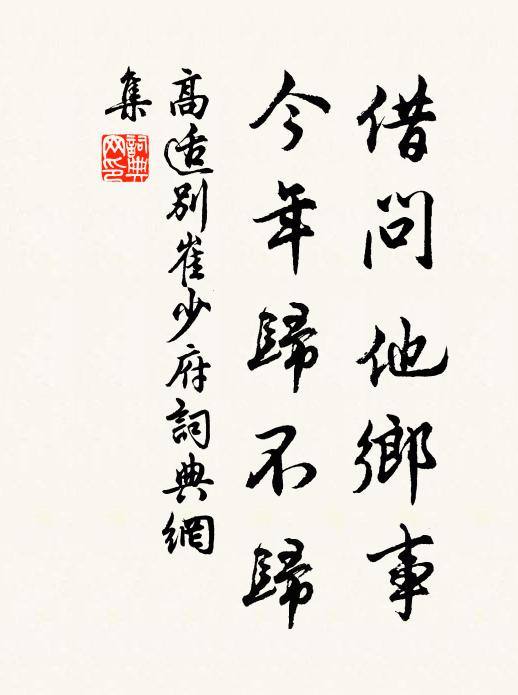 借問他鄉事
今年歸不歸
高適別崔少府詞典網
集
詞典
網印